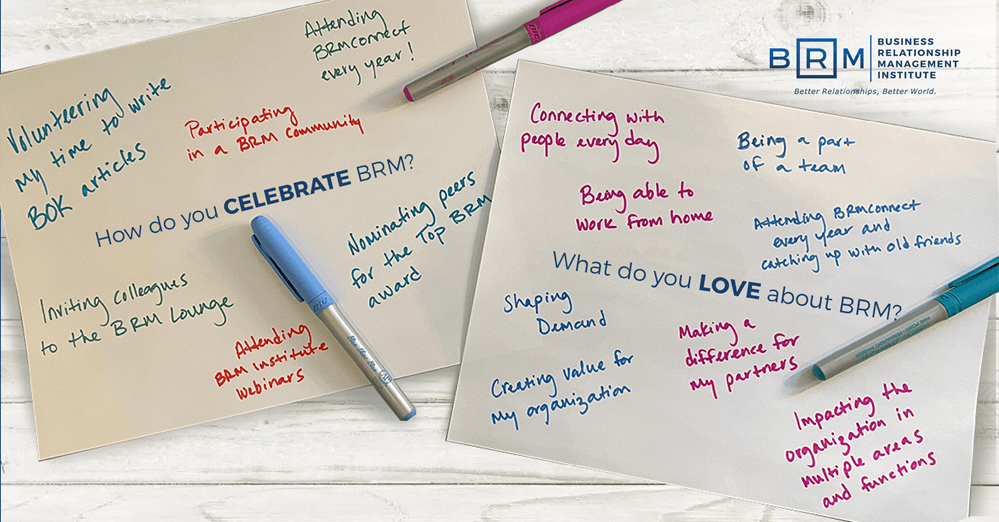 Attending
BRMConnect
every year!
Volunteering
my time to write
BOK articles
Participating
in a BRM Community
How do you CELEBRATE BRM?
Nominating peers
for the Top BRM
award
Inviting colleagues
to the BRM Lounge
Attending
BRM Institute
Webinars
BRM
BUSINESS
RELATIONSHIP
MANAGEMENT
INSTITUTE
Better Relationships, Better World.
Connecting with
people every day
Being a part
of a team
Being able to
work from home
Attending BRMConnect
every year and
catching up with old friends
What do you LOVE about BRM?
Shaping
Demand
Making a
difference for
my partners
Creating value for
my organization
Impacting the
organization in
multiple areas
and functions